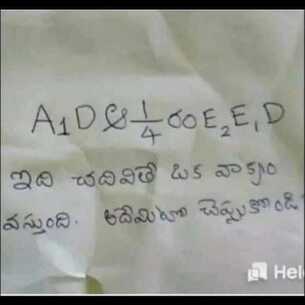 A₁D & 1/4 రం E₂E₁D
ఇది చదివితే ఒక వాక్యం
వస్తుంది. అదేమిటో చెప్పుకోండి